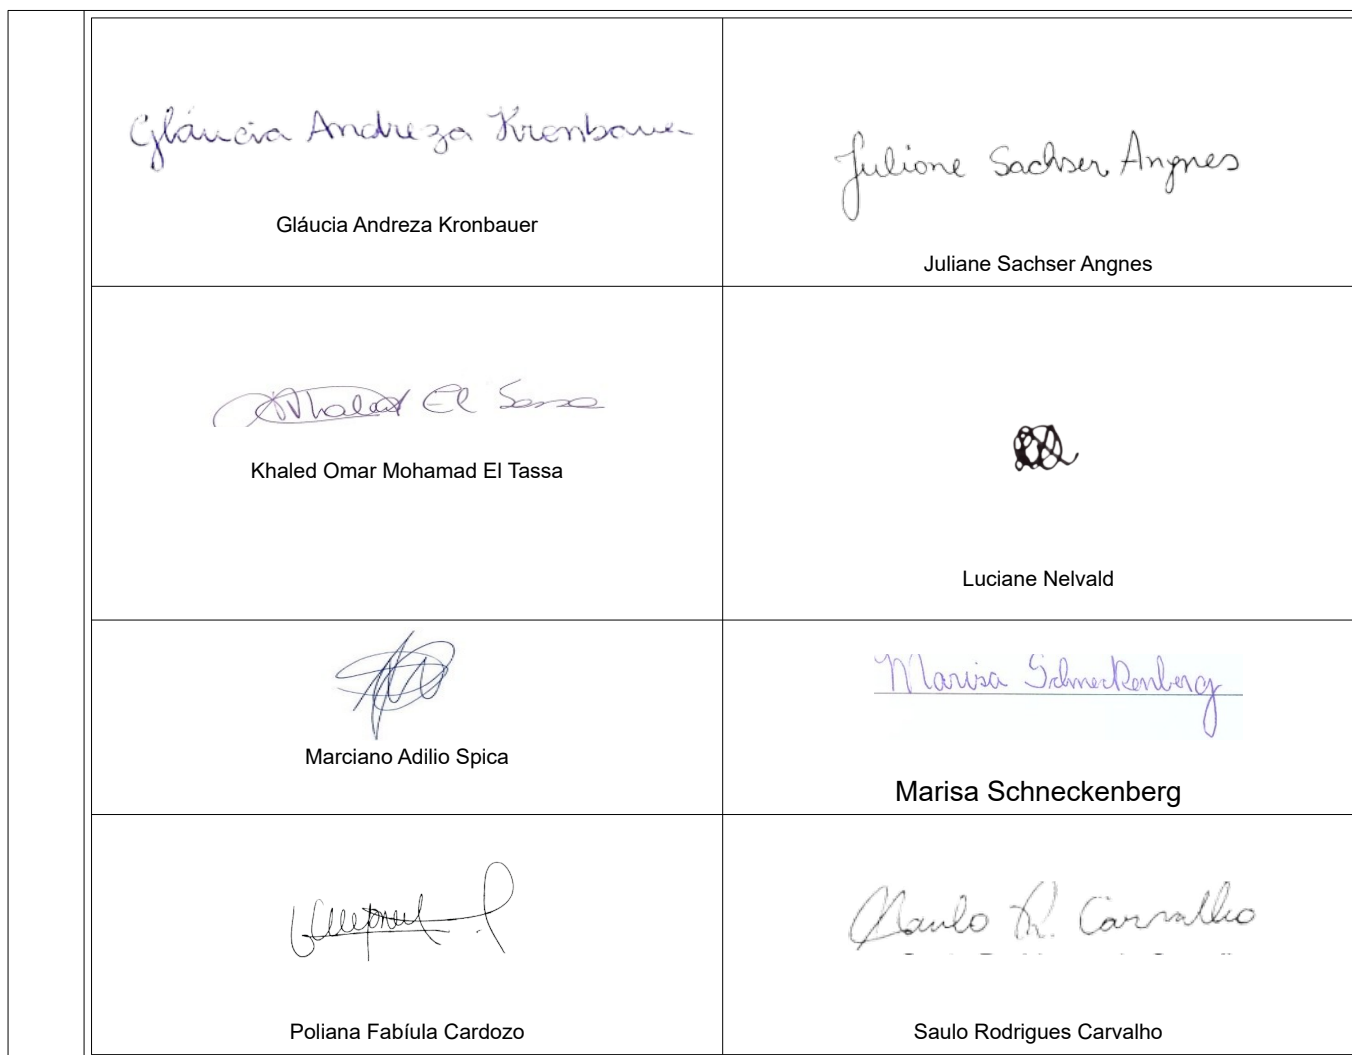 Gláucia Andreza Kronbauer
Gláucia Andreza Kronbauer
Juliane Sachser Angnes
Juliane Sachser Angnes
Khaled El
Khaled Omar Mohamad El Tassa
Luciane Nelvald
Marciano Adilio Spica
Marisa Schneckenberg
Marisa Schneckenberg
Poliana Fabíula Cardozo
Saulo R. Carvalho
Saulo Rodrigues Carvalho